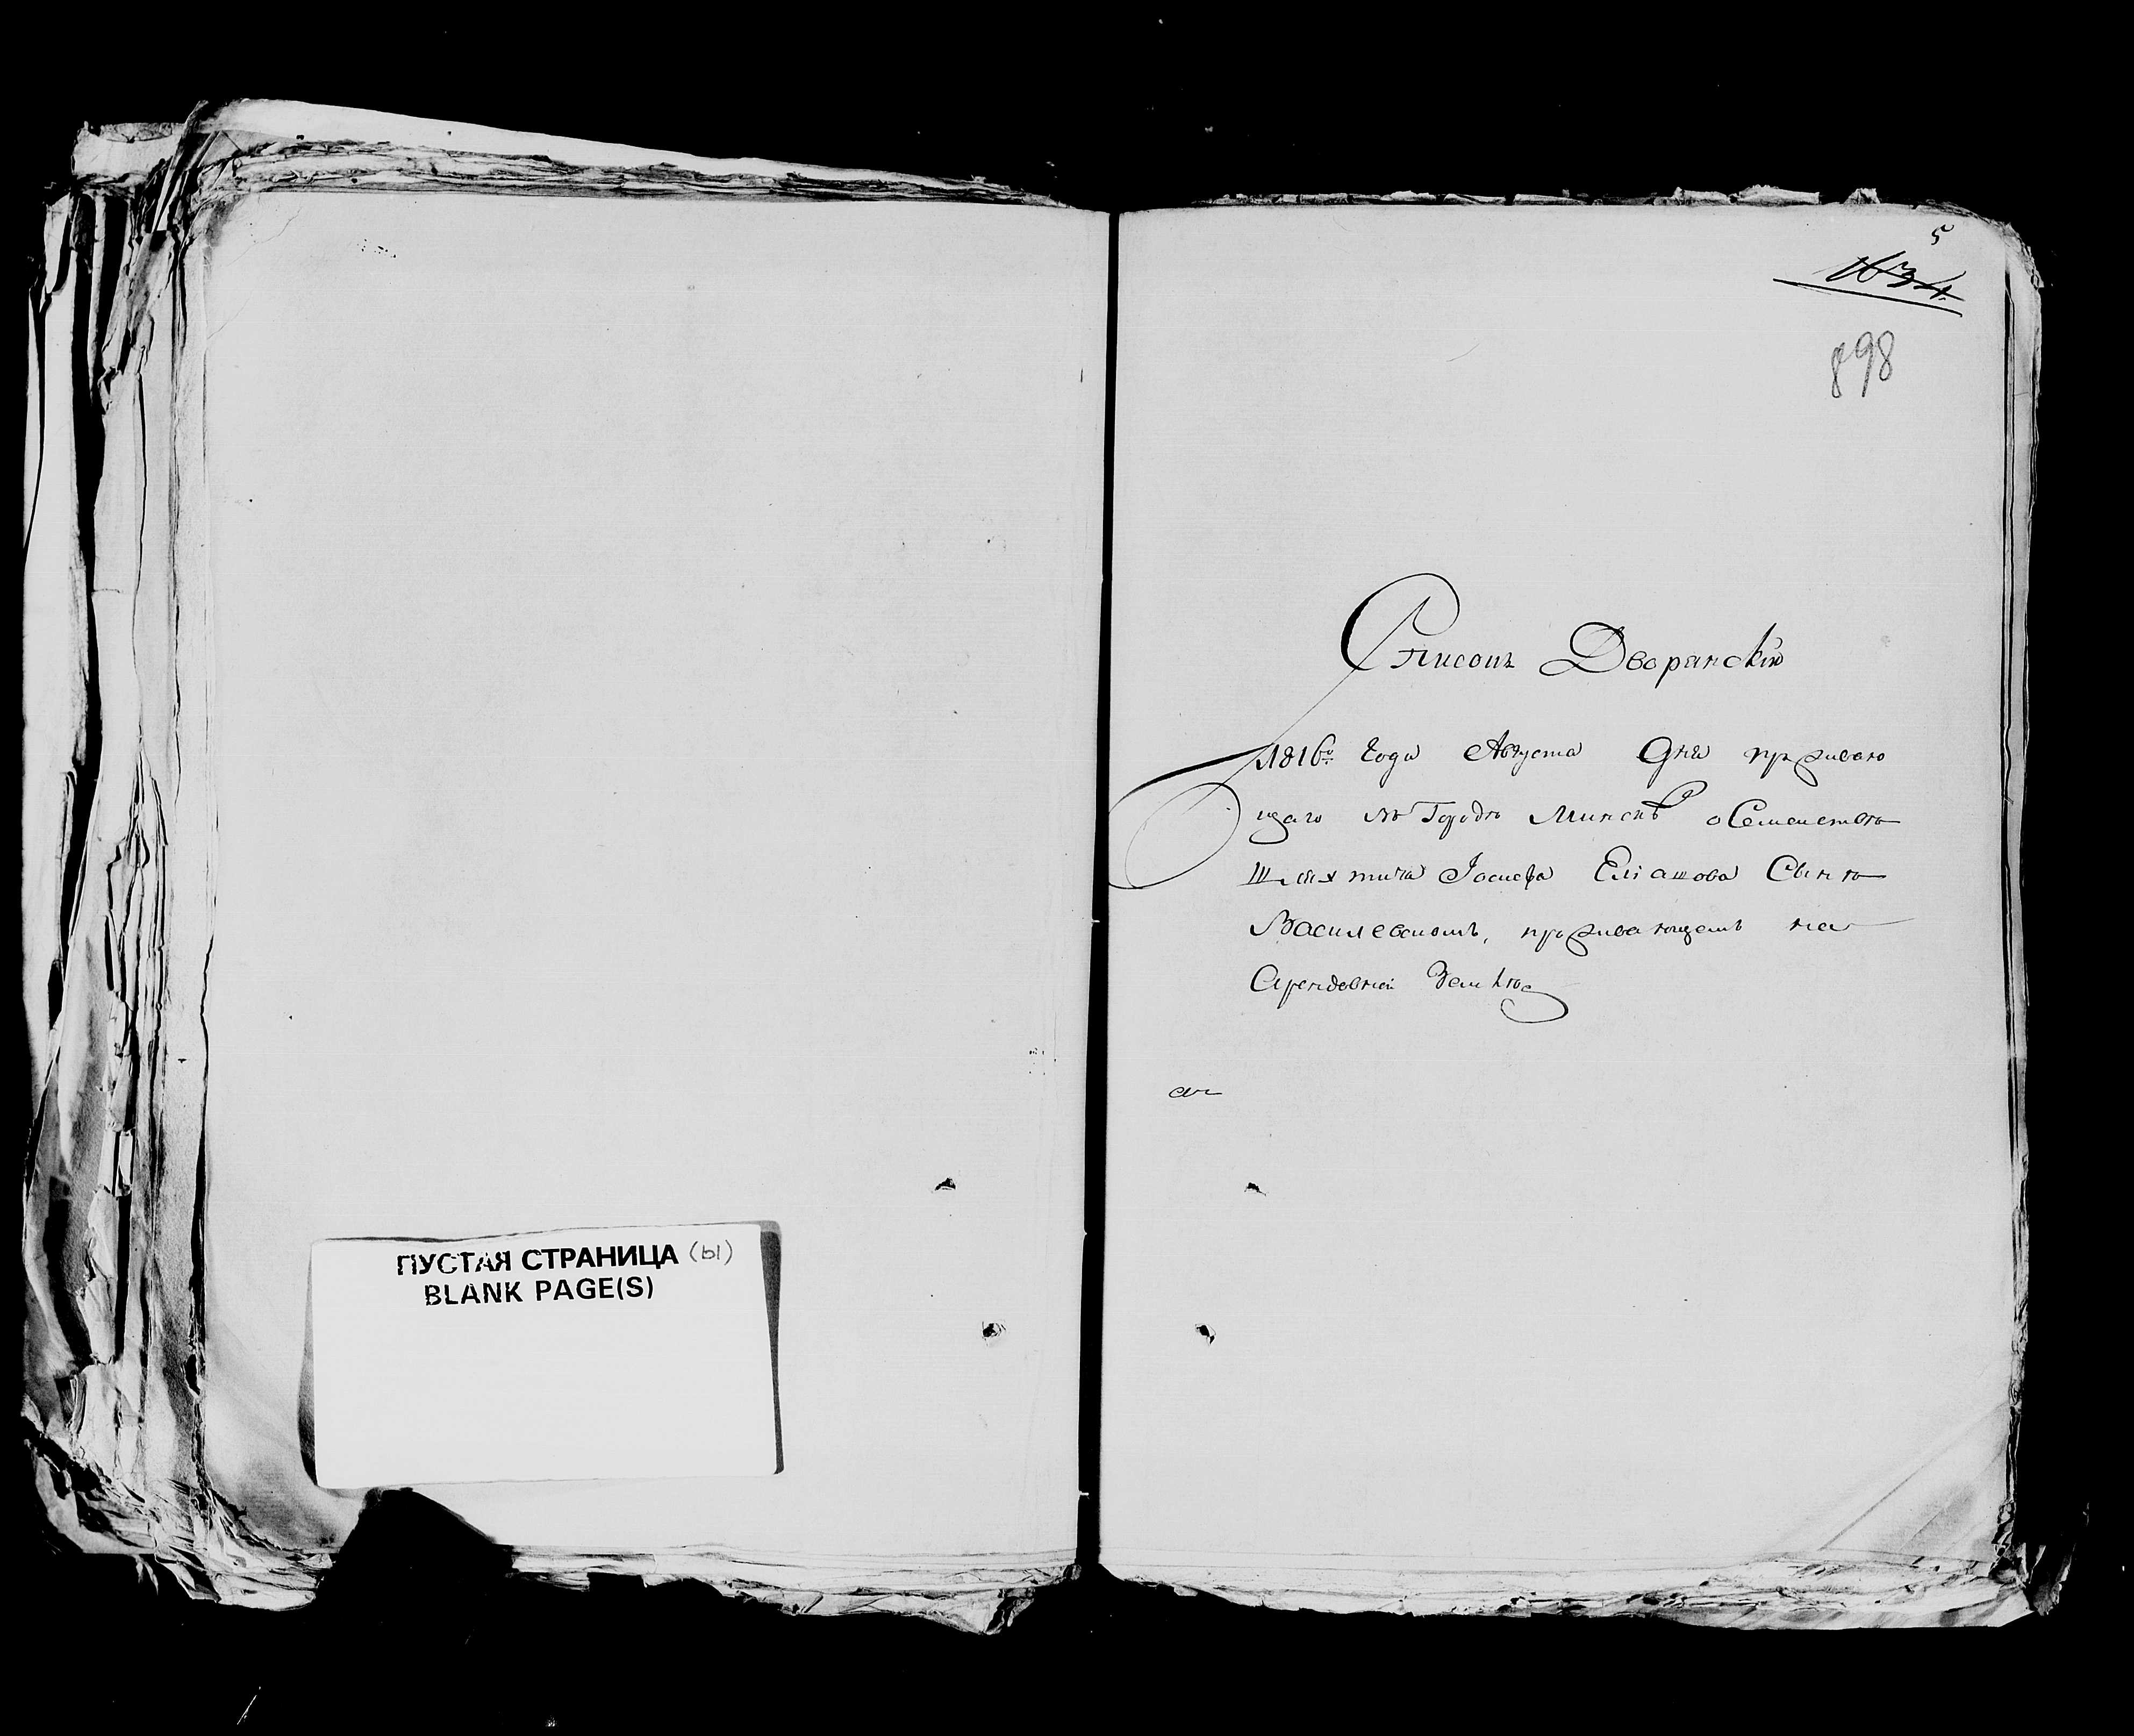 ПУСТАЯ СТРАНИЦА (ы)
BLANK PAGE(S)
5
898
Списокъ Дворянскій
1816го Года Августа Дня прживаю
щаго въ Городѣ Минскѣ о Семействѣ
Шляхтича Іосифа Еліашова Сынѣ
Василевскомъ, проживающемъ на
Арендовной Земле